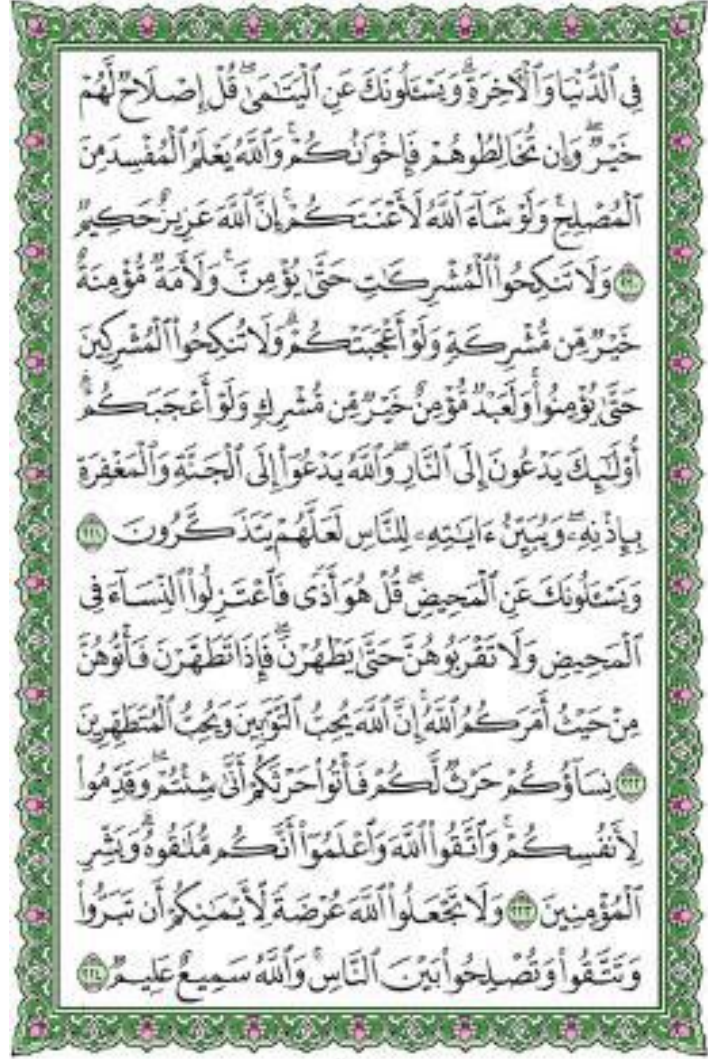 فِي ٱلدُّنْيَا وَٱلْـَٔاخِرَةِ ۗ وَيَسْـَٔلُونَكَ عَنِ ٱلْيَتَـٰمَىٰ ۖ قُلْ إِصْلَاحٌ لَّهُمْ
خَيْرٌ ۖ وَإِن تُخَالِطُوهُمْ فَإِخْوَٰنُكُمْ ۚ وَٱللَّهُ يَعْلَمُ ٱلْمُفْسِدَ مِنَ
ٱلْمُصْلِحِ ۚ وَلَوْ شَآءَ ٱللَّهُ لَأَعْنَتَكُمْ ۚ إِنَّ ٱللَّهَ عَزِيزٌ حَكِيمٌ
﴿٢٢٠﴾ وَلَا تَنكِحُوا۟ ٱلْمُشْرِكَـٰتِ حَتَّىٰ يُؤْمِنَّ ۚ وَلَأَمَةٌ مُّؤْمِنَةٌ
خَيْرٌ مِّن مُّشْرِكَةٍ وَلَوْ أَعْجَبَتْكُمْ ۗ وَلَا تُنكِحُوا۟ ٱلْمُشْرِكِينَ
حَتَّىٰ يُؤْمِنُوا۟ ۚ وَلَعَبْدٌ مُّؤْمِنٌ خَيْرٌ مِّن مُّشْرِكٍ وَلَوْ أَعْجَبَكُمْ ۗ
أُو۟لَـٰٓئِكَ يَدْعُونَ إِلَى ٱلنَّارِ ۖ وَٱللَّهُ يَدْعُوٓا۟ إِلَى ٱلْجَنَّةِ وَٱلْمَغْفِرَةِ
بِإِذْنِهِۦ ۖ وَيُبَيِّنُ ءَايَـٰتِهِۦ لِلنَّاسِ لَعَلَّهُمْ يَتَذَكَّرُونَ ﴿٢٢١﴾
وَيَسْـَٔلُونَكَ عَنِ ٱلْمَحِيضِ ۖ قُلْ هُوَ أَذًى فَٱعْتَزِلُوا۟ ٱلنِّسَآءَ فِي
ٱلْمَحِيضِ وَلَا تَقْرَبُوهُنَّ حَتَّىٰ يَطْهُرْنَ ۖ فَإِذَا تَطَهَّرْنَ فَأْتُوهُنَّ
مِنْ حَيْثُ أَمَرَكُمُ ٱللَّهُ ۚ إِنَّ ٱللَّهَ يُحِبُّ ٱلتَّوَّٰبِينَ وَيُحِبُّ ٱلْمُتَطَهِّرِينَ
﴿٢٢٢﴾ نِسَآؤُكُمْ حَرْثٌ لَّكُمْ فَأْتُوا۟ حَرْثَكُمْ أَنَّىٰ شِئْتُمْ ۖ وَقَدِّمُوا۟
لِأَنفُسِكُمْ ۚ وَٱتَّقُوا۟ ٱللَّهَ وَٱعْلَمُوٓا۟ أَنَّكُم مُّلَـٰقُوهُ ۗ وَبَشِّرِ
ٱلْمُؤْمِنِينَ ﴿٢٢٣﴾ وَلَا تَجْعَلُوا۟ ٱللَّهَ عُرْضَةً لِّأَيْمَـٰنِكُمْ أَن تَبَرُّوا۟
وَتَتَّقُوا۟ وَتُصْلِحُوا۟ بَيْنَ ٱلنَّاسِ ۗ وَٱللَّهُ سَمِيعٌ عَلِيمٌ ﴿٢٢٤﴾